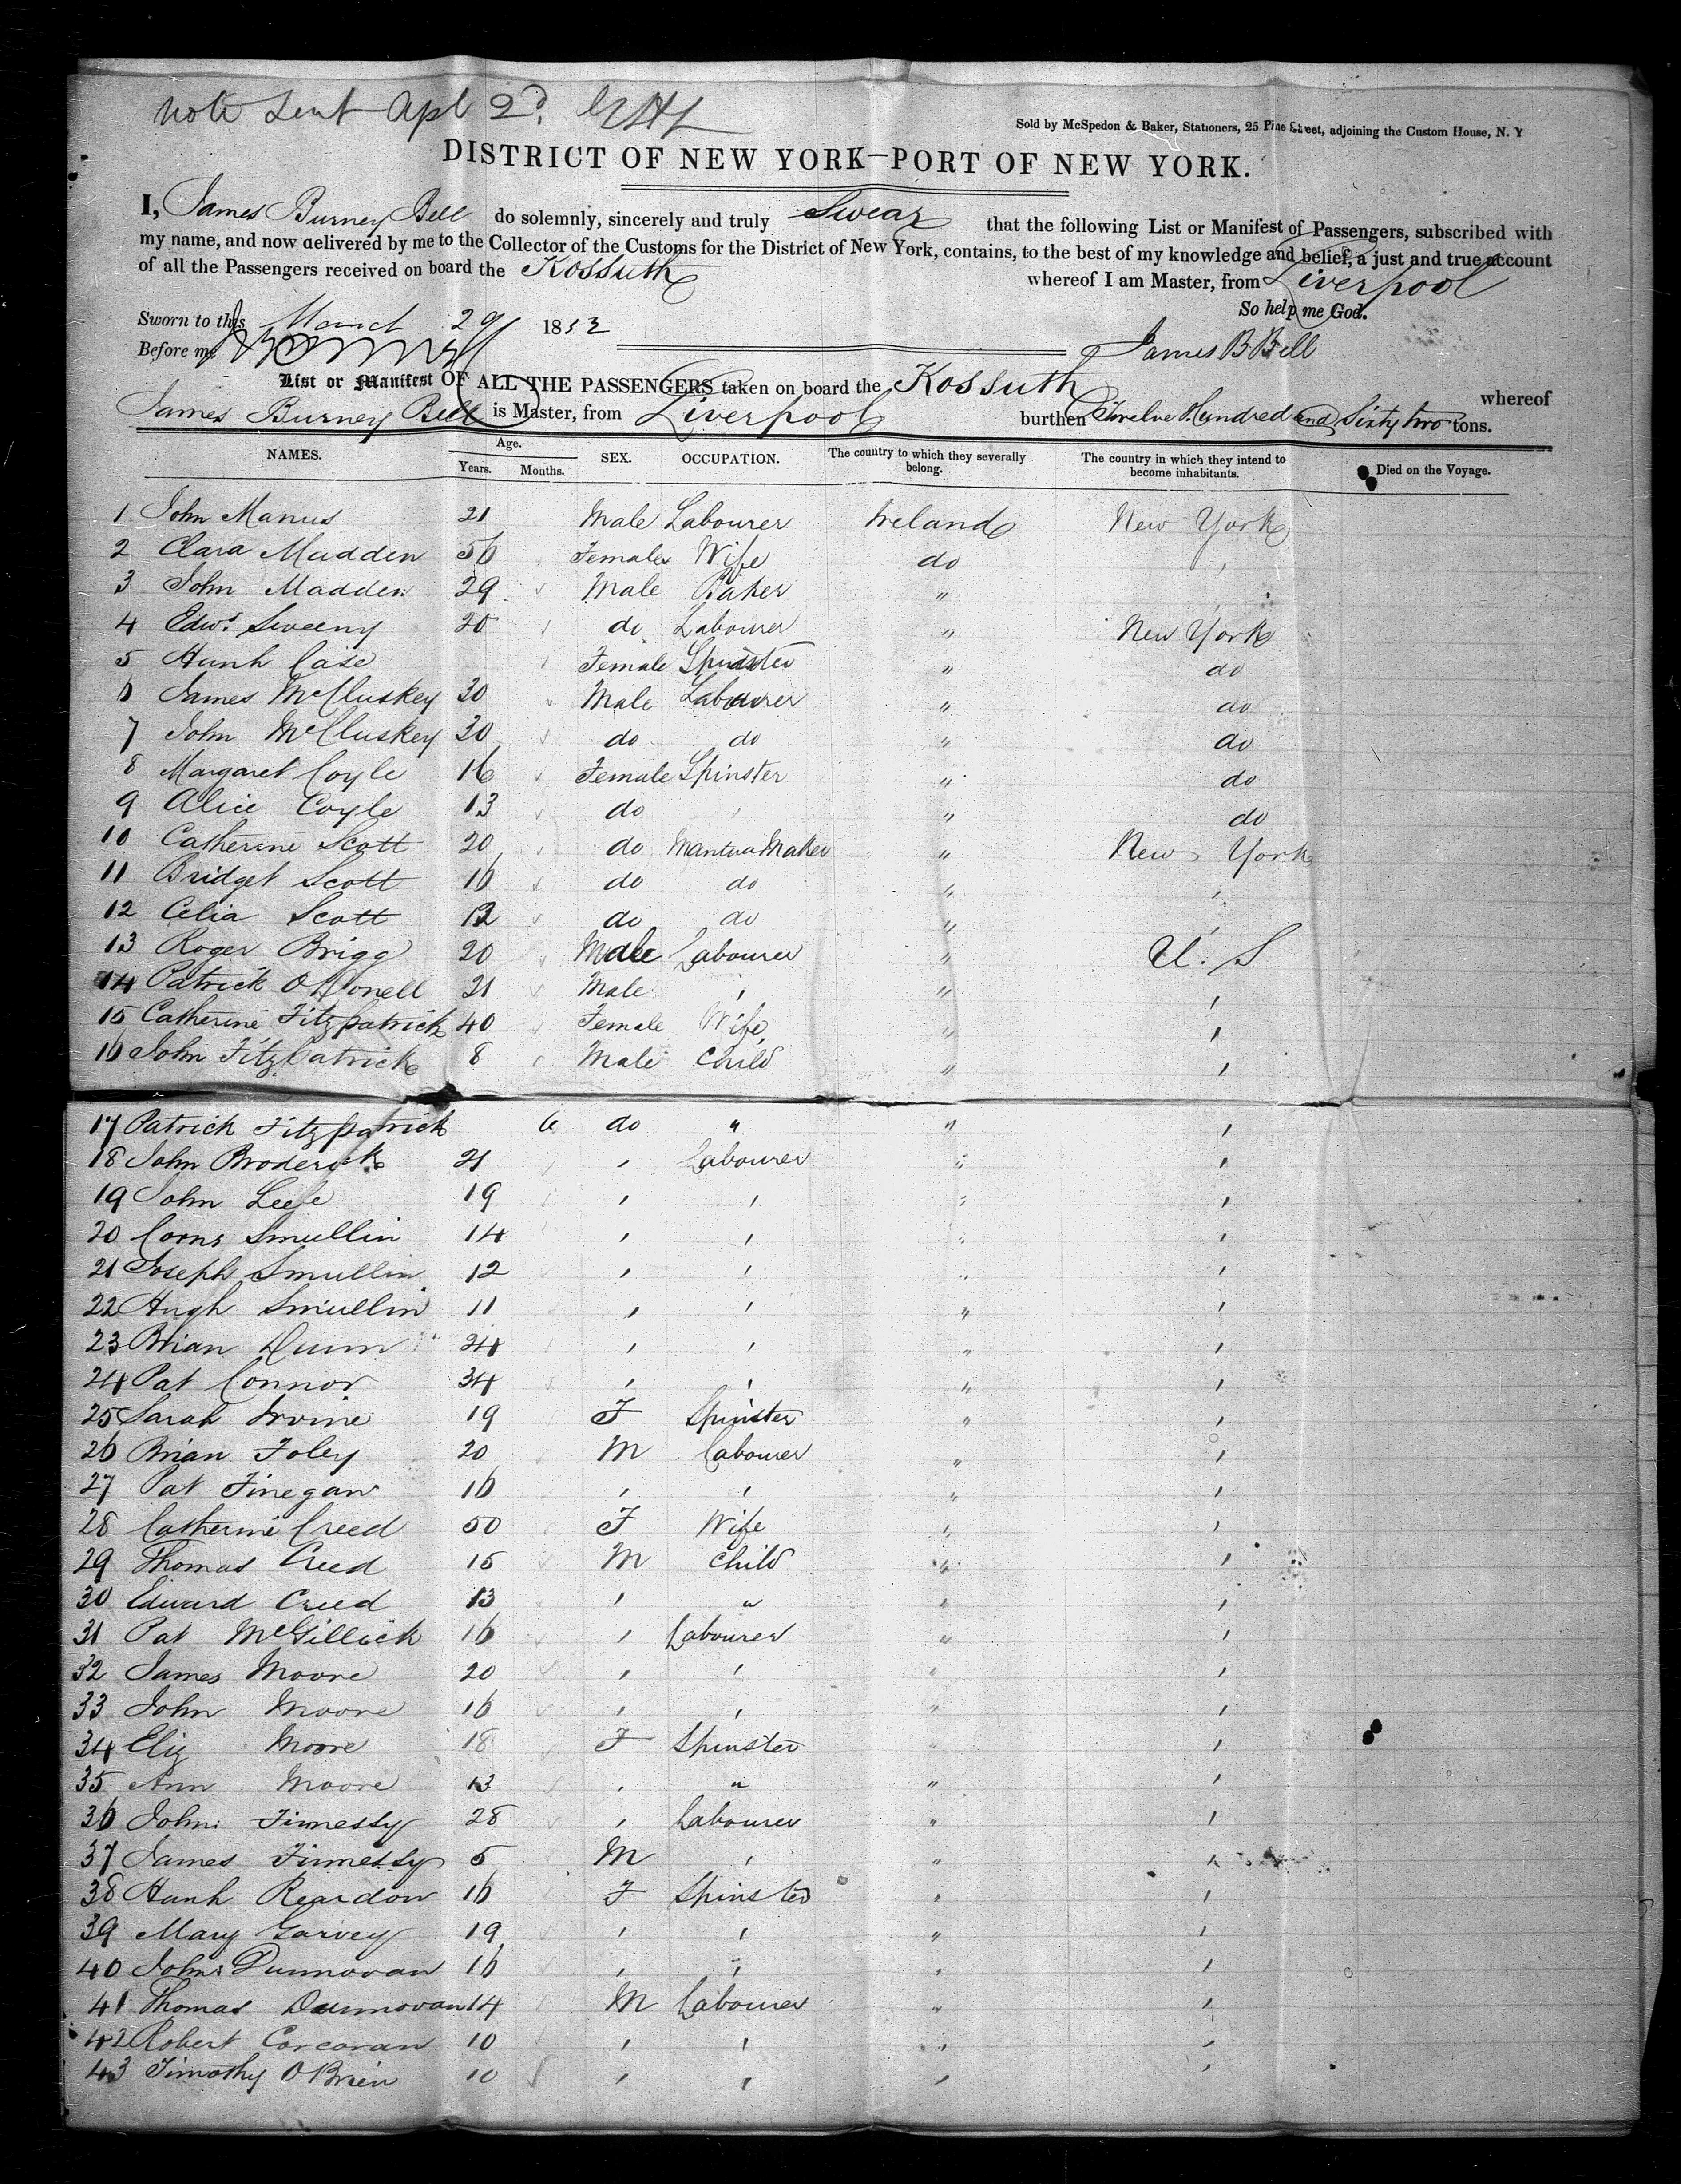 Note Sent Apl 2d.
Sold by McSpedon & Baker, Stationers, 25 Pine Street, adjoining the Custom House, N. Y
DISTRICT OF NEW YORK—PORT OF NEW YORK.
I, James Burney Bell do solemnly, sincerely and truly Swear that the following List or Manifest of Passengers, subscribed with
my name, and now delivered by me to the Collector of the Customs for the District of New York, contains, to the best of my knowledge and belief, a just and true account
of all the Passengers received on board the Kossuth whereof I am Master, from Liverpool
So help me God.
Sworn to this March 29 1852
Before me
James B Bell
List or Manifest OF ALL THE PASSENGERS taken on board the Kossuth whereof
James Burney Bell is Master, from Liverpool burthen Twelve Hundred and Sixty two tons.
NAMES. Age. Years. Months. SEX. OCCUPATION. The country to which they severally belong. The country in which they intend to become inhabitants. Died on the Voyage.
1 John Manus 21 Male Labourer Ireland New York
2 Clara Madden 56 Female Wife do '
3 John Madden 29 Male Baker " '
4 Edwd. Sweeny 20 do Labourer " New York
5 Hanh Case Female Spinster " do
6 James McCluskey 30 Male Labourer " do
7 John McCluskey 30 do do " do
8 Margaret Coyle 16 Female Spinster " do
9 Alice Coyle 13 do ' " do
10 Catherine Scott 20 do Mantua Maker " New York
11 Bridget Scott 16 do do " '
12 Celia Scott 12 do do " '
13 Roger Brigg 20 Male Labourer " U. S
14 Patrick O'Donell 21 Male ' " '
15 Catherine Fitzpatrick 40 Female Wife " '
16 John Fitzpatrick 8 Male Child " '
17 Patrick Fitzpatrick 6 do " " '
18 John Broderick 21 ' Labourer " '
19 John Leefe 19 ' ' " '
20 Corns Smullin 14 ' ' " '
21 Joseph Smullin 12 ' ' " '
22 Hugh Smullin 11 ' ' " '
23 Brian Quinn 24 ' ' " '
24 Pat Connor 34 ' ' " '
25 Sarah Irvine 19 F Spinster " '
26 Brian Foley 20 M Labourer " '
27 Pat Finegan 16 ' ' " '
28 Catherine Creed 50 F Wife " '
29 Thomas Creed 15 M Child " '
30 Edward Creed 13 ' " " '
31 Pat McGillick 16 ' Labourer " '
32 James Moore 20 ' ' " '
33 John Moore 16 ' ' " '
34 Eliz Moore 18 F Spinster " '
35 Ann Moore 13 ' " " '
36 John Finnessy 28 ' Labourer " '
37 James Finnessy 5 M ' " '
38 Hanh Reardon 16 F Spinster " '
39 Mary Garvey 19 ' ' " '
40 John Dunnovan 16 ' ' " '
41 Thomas Dunnovan 14 M Labourer " '
42 Robert Corcoran 10 ' ' " '
43 Timothy O'Brien 10 ' ' ' '